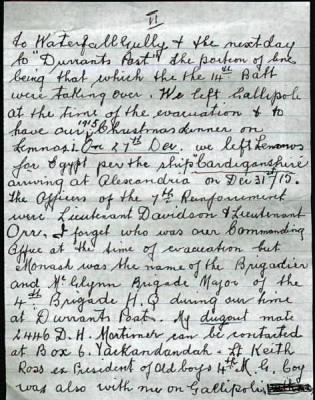 VI
to Waterfall Gully & the next day
to "Durrants Post" the portion of line
being that which the the 14th Batt
were taking over. We left Gallipoli
at the time of the evacuation & to
have our 1915 Christmas dinner on
Lemnos. On 27th Dec. we left Lemnos
for Egypt per the ship "Cardiganshire
arriving at Alexandria on Dec 31st/15.
The Officers of the 7th Reinforcement
were Lieutenant Davidson & Lieutenant
Orr. I forget who was our Commanding
Officer at the time of evacuation but
Monash was the name of the Brigadier
and McGlynn Brigade Major of the
4th Brigade H.Q during our time
at Durrants Post. My dugout mate
2446 D. H. Mortimer can be contacted
at Box 6. Yackandandah. Lt Keith
Ross ex President of Old boys 4th M. G. Coy
was also with me on Gallipoli